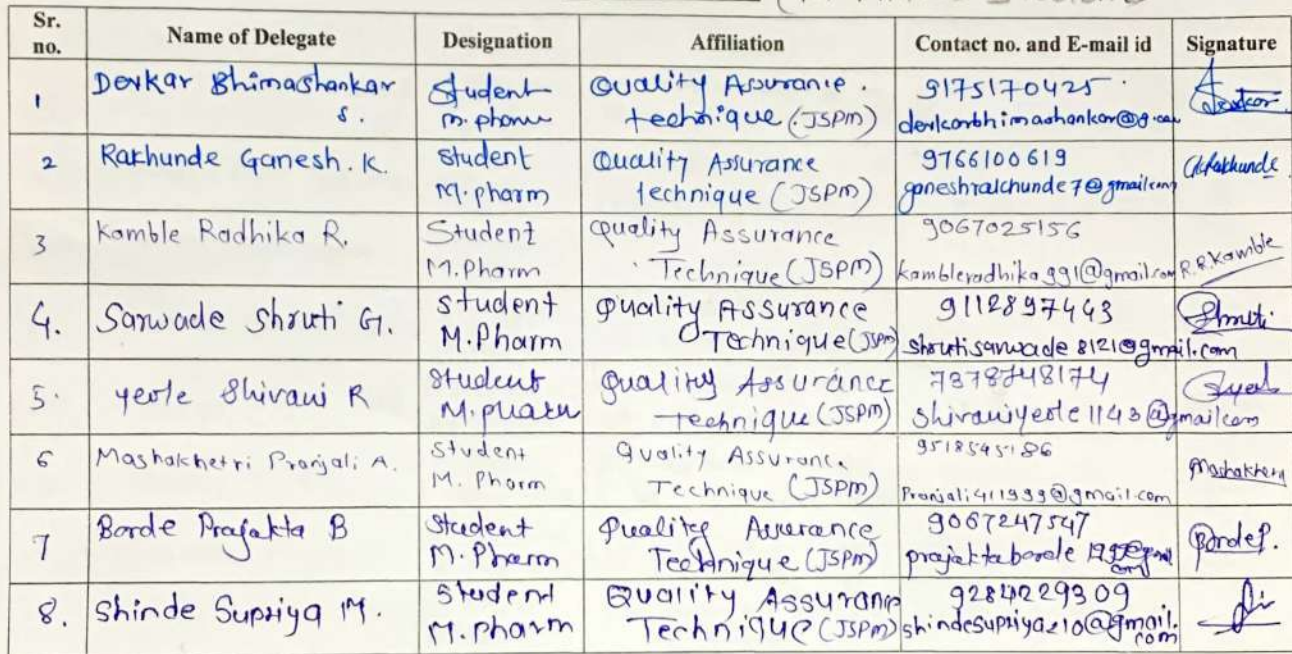 Sr. no. Name of Delegate Designation Affiliation Contact no. and E-mail id Signature
1 Devkar Bhimashankar S. Student M.pharm Quality Assurance technique (JSPM) 9175170425
2 Rakhunde Ganesh. K. Student M.pharm Quality Assurance technique (JSPM) 9766100619 ganeshrakhunde7@gmail.com GkRakhunde
3 Kamble Radhika R. Student M.Pharm Quality Assurance Technique (JSPM) 9067025156 kambleradhika991@gmail.com R.R.Kamble
4. Sarwade Shruti G. Student M.Pharm Quality Assurance Technique (JSPM) 9112897443 shrutisarwade8121@gmail.com Shruti
5. yeole Shivani R Student M.pharm Quality Assurance Technique (JSPM) 7378748174 shivaniyeole1143@gmail.com
6 Mashakhetri Pranjali A. Student M. Pharm Quality Assurance Technique (JSPM) 9518545186 Pranjali411999@gmail.com
7 Borde Prajakta B Student M. Pharm Quality Assurance Technique (JSPM) 9067247547 BordeP.
8. Shinde Supriya M. Student M.pharm Quality Assurance Technique (JSPM) 9284229309 shindesupriya210@gmail.com